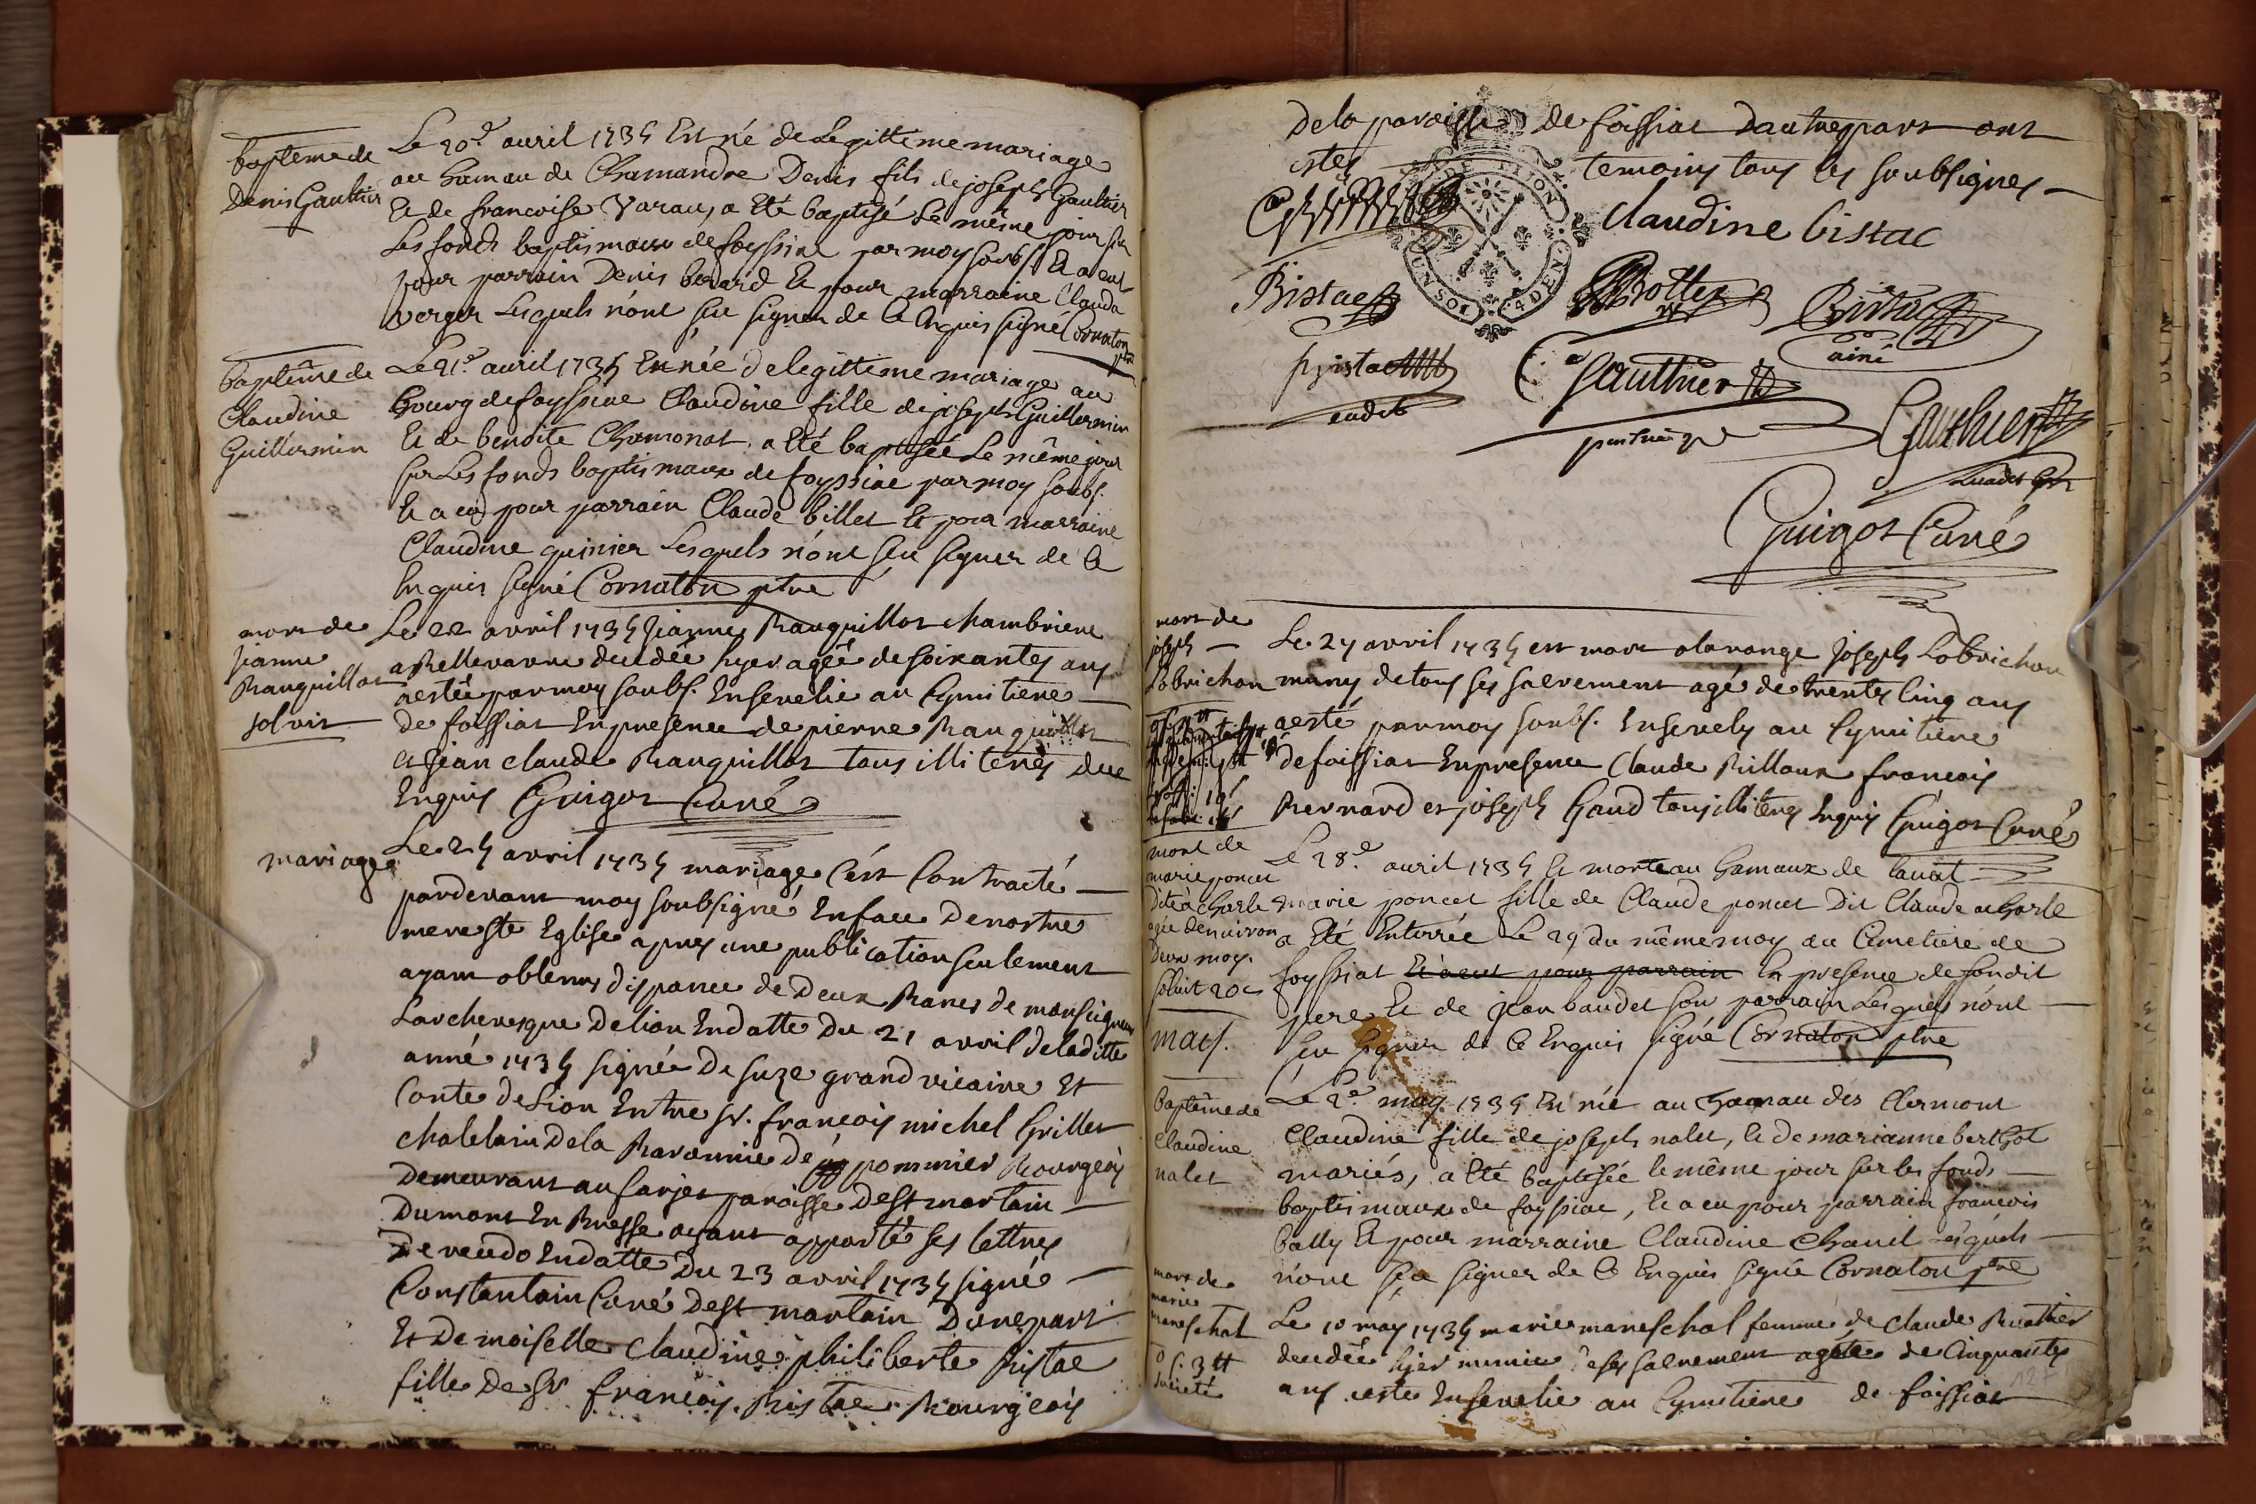 baptême de
Denis Gaultier
Le 20e avril 1735 Est né de Legittime mariage
au hamau de Chamandre Denis fils de joseph Gaultier
Et de francoise Varau, a Eté baptisé Le même jour sur
Les fonds baptismaux de foyssiac par moy soubs. Et a eut
pour parrain Denis berard Et pour marraine Clauda
verger Lesquels n'ont sçu signer de ce Enquis signé Cornaton
ptre
baptême de
Claudine
Guillermin
Le 21e avril 1735 Est née de legittime mariage au
bourg de foyssiac Claudine fille de joseph Guillermin
Et de benoite Chamonat a Eté baptisée Le même jour
sur Les fonds baptismaux de foyssiac par moy soubs.
Et a eu pour parrain Claude billet Et pour marraine
Claudine quinier Lesquels n'ont sçu signer de ce
Enquis signé Cornaton ptre
mort de
jeanne
Ranguillot
solvit
Le 22 avril 1735 Jeanne Ranguillot chambriere
a Bellevavre decedée hyer agée de soixantes ans
a estée par moy soubs. Ensevelie au Cymitiere
de foissiat En presence de pierre Ranguillot
et Jean claude Ranguillot tous illiterés due
Enquis Guigot Curé
mariage
Le 25 avril 1735 mariage C'est Contracté
pardevant moy soubsigné En face De nostre
mere ste Eglise apres une publication seulement
ayant obtenus dispance de Deux Bancs de monseigneur
Larchevesque De lion En datte Du 21 avril de laditte
anné 1735 signée De suze grand vicaire Et
Conte de Lion Entre sr. françois michel Grillet
chatelain De la Baronnie de pommier Bourgeois
Demeurant au farjet paroisse De st martain
Dumont En Bresse ayant apporté ses lettres
De recedo En datte Du 23 avril 1735 signé
Constantain Curé De st martain D'une part
Et Demoiselle Claudine philiberte Bistac
fille De sr françois Bistac Bourgeois
De la paroisse de foissiat D'autre part ont
estés temoins tous les soubsignes
Claudine bistac
Bistac
Bottex
Bistac
ainé
Bistac
cadet
Gauthier
Gauthier
cadet
Guigot Curé
mort de
joseph
Lobrichon
Le 27 avril 1735 est mort a la range Joseph Lobrichon
muny de tous ses sacrement agé de trentes Cinq ans
a esté par moy soubs. Ensevely au Cymitiere
de foissiat En presence Claude Billoux francois
Bernard et joseph Gaud tous illiterés Enquis Guigot Curé
mort de
marie poncet
dite à charle
agée d'environ
Deux moys.
solvit 20 s
mats.
Le 28e avril 1735 Est morte au hamaux de lavat
marie poncet fille de Claude poncet Dit Claude a charle
a Eté Enterrée Le 29 du même moy au Cimetiere de
foyssiat Et a eut pour parrain En presence de son dit
pere Et de jean baudet son parrain Lesquels n'ont
sçu signer de ce Enquis signé Cornaton ptre
baptême de
Claudine
nalet
Le 2e may 1735 Est née au hamau des Clermont
Claudine fille de joseph nalet, Et de marianne berthot
mariés, a Eté baptisée le même jour sur les fonds
baptismaux de foyssiac, Et a eu pour parrain francois
bally Et pour marraine Claudine Chanel lesquels
n'ont sçu signer de ce Enquis signé Cornaton ptre
mort de
marie
mareschal
Le 10 may 1735 marie mareschal femme de Claude Buathier
decedée hyer munie de ses sacrement agée de Cinquantes
ans a esté Ensevelie au Cymitiere de foissiat
127